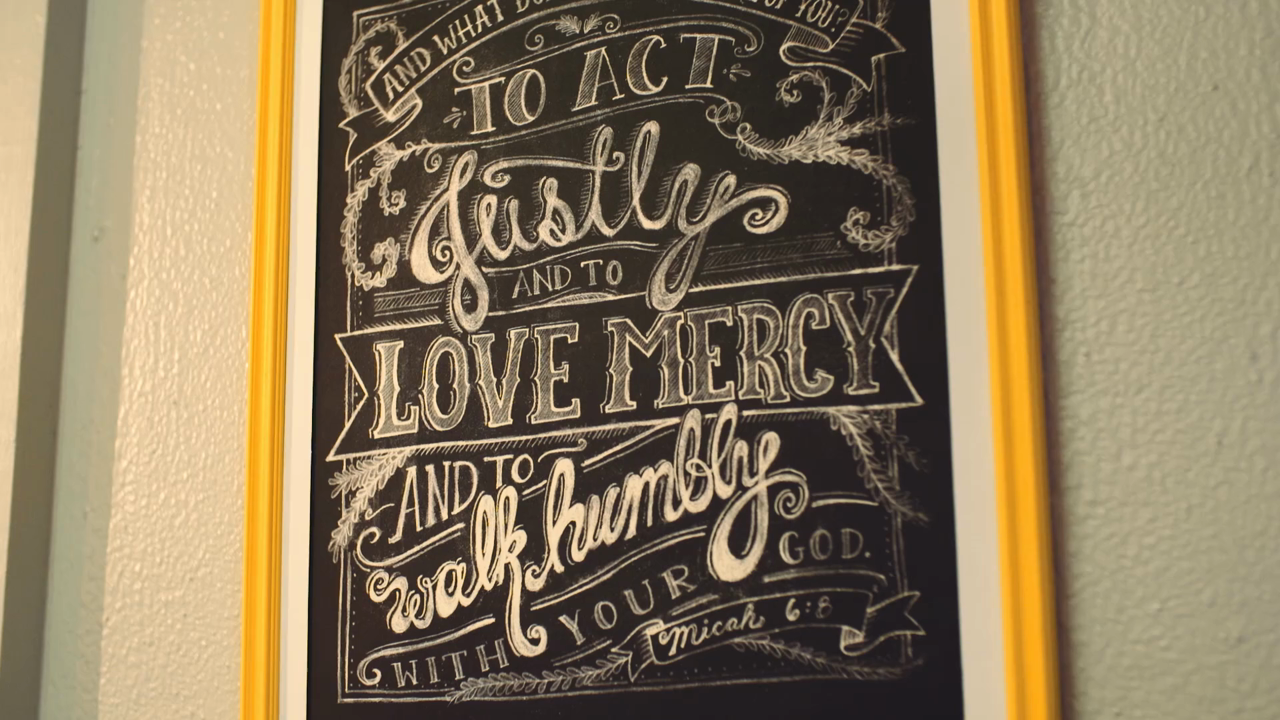 AND WHAT OF YOU?
TO ACT
Justly
AND TO
LOVE MERCY
AND TO
walk humbly
WITH YOUR GOD.
Micah 6:8